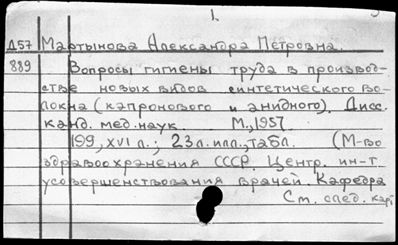 1.
Д57 Мартынова Александра Петровна.
889 Вопросы гигиены труда в производ-
стве новых видов синтетического во-
локна (капронового и анидного). Дисс.
канд. мед. наук М., 1957
199, XVI л.; 23 л. илл., табл. (М-во
здравоохранения СССР. Центр. ин-т
усовершенствования врачей. Кафедра
См. след. карт